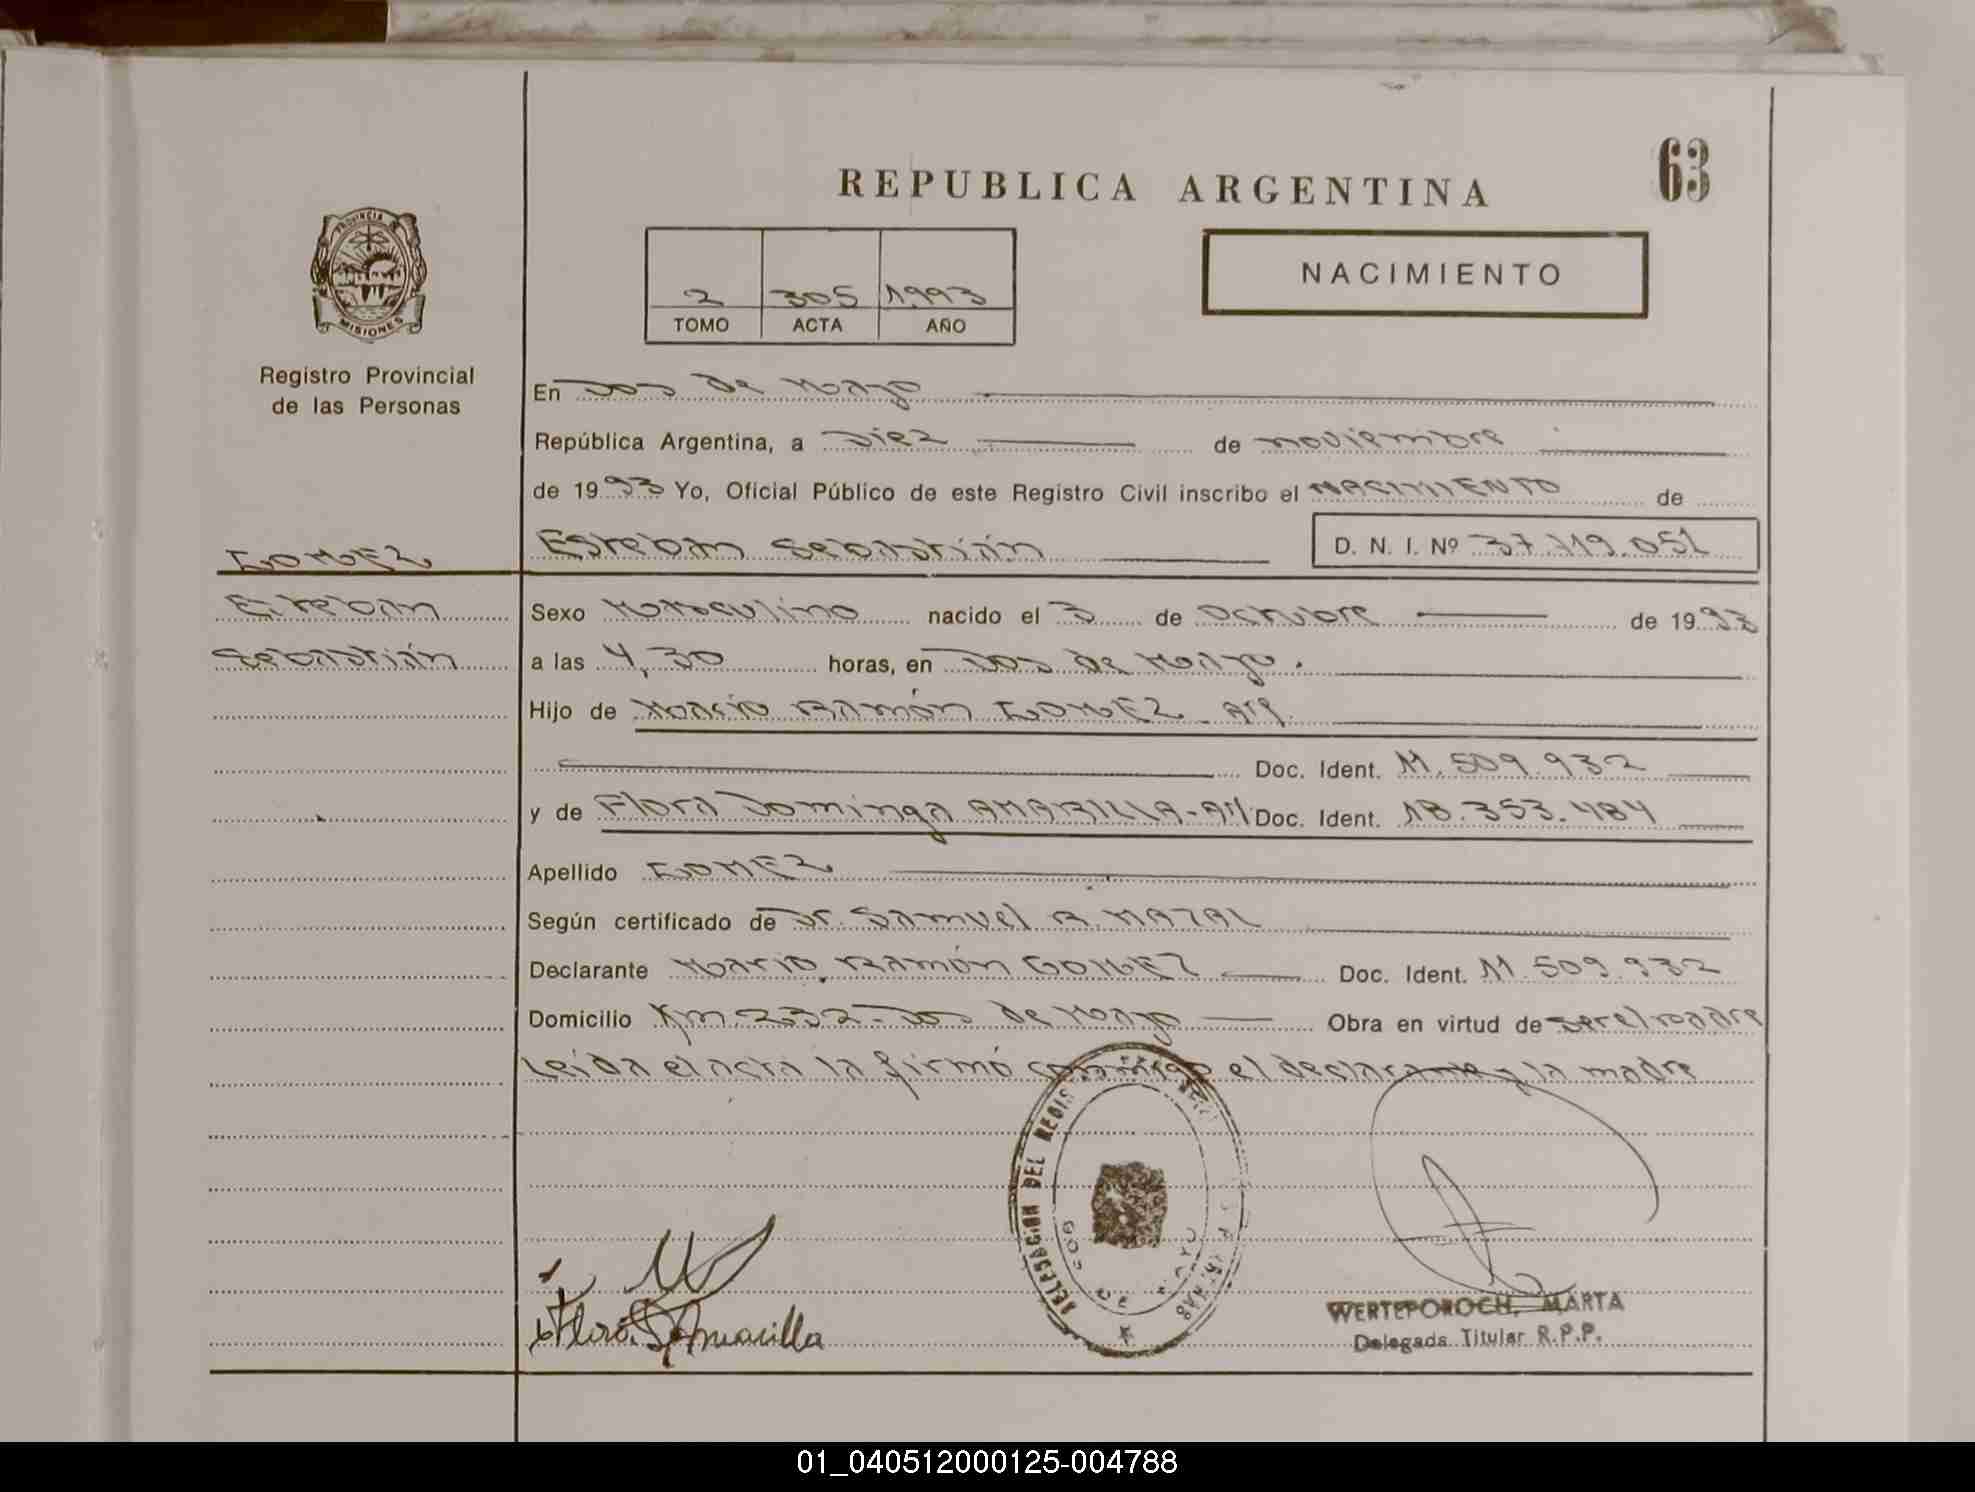 63
REPUBLICA ARGENTINA
NACIMIENTO
2 305 1993
TOMO ACTA AÑO
PROVINCIA DE
MISIONES
Registro Provincial
de las Personas
En Dos de Mayo
República Argentina, a Diez de noviembre
de 1993 Yo, Oficial Público de este Registro Civil inscribo el NACIMIENTO de
GOMEZ Esteban Sebastián D. N. I. Nº 37.719.051
Esteban Sexo Masculino nacido el 3 de Octubre de 1993
Sebastián a las 4,30 horas, en Dos de Mayo.
Hijo de Mario Ramón GOMEZ - Arg.
Doc. Ident. M. 509.932
y de Flora Dominga AMARILLA - Doc. Ident. 18.353.484
Apellido GOMEZ
Según certificado de Dr. Samuel R. MAZAL
Declarante Mario Ramón GOMEZ Doc. Ident. M. 509.932
Domicilio Km. 232 - Dos de Mayo Obra en virtud de ser el padre
Leída el acta la firmó conmigo el declarante y la madre
DELEGACION DEL REGIS
DOS DE MAYO
Flora D Amarilla
WERTEPOROCH, MARTA
Delegada Titular R.P.P.
01_040512000125-004788